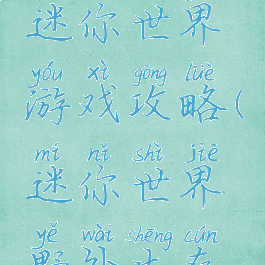 迷你世界
yóu xì gōng lüè
游戏攻略(
mí nǐ shì jiè
迷你世界
yě wài shēng cún
野外生存